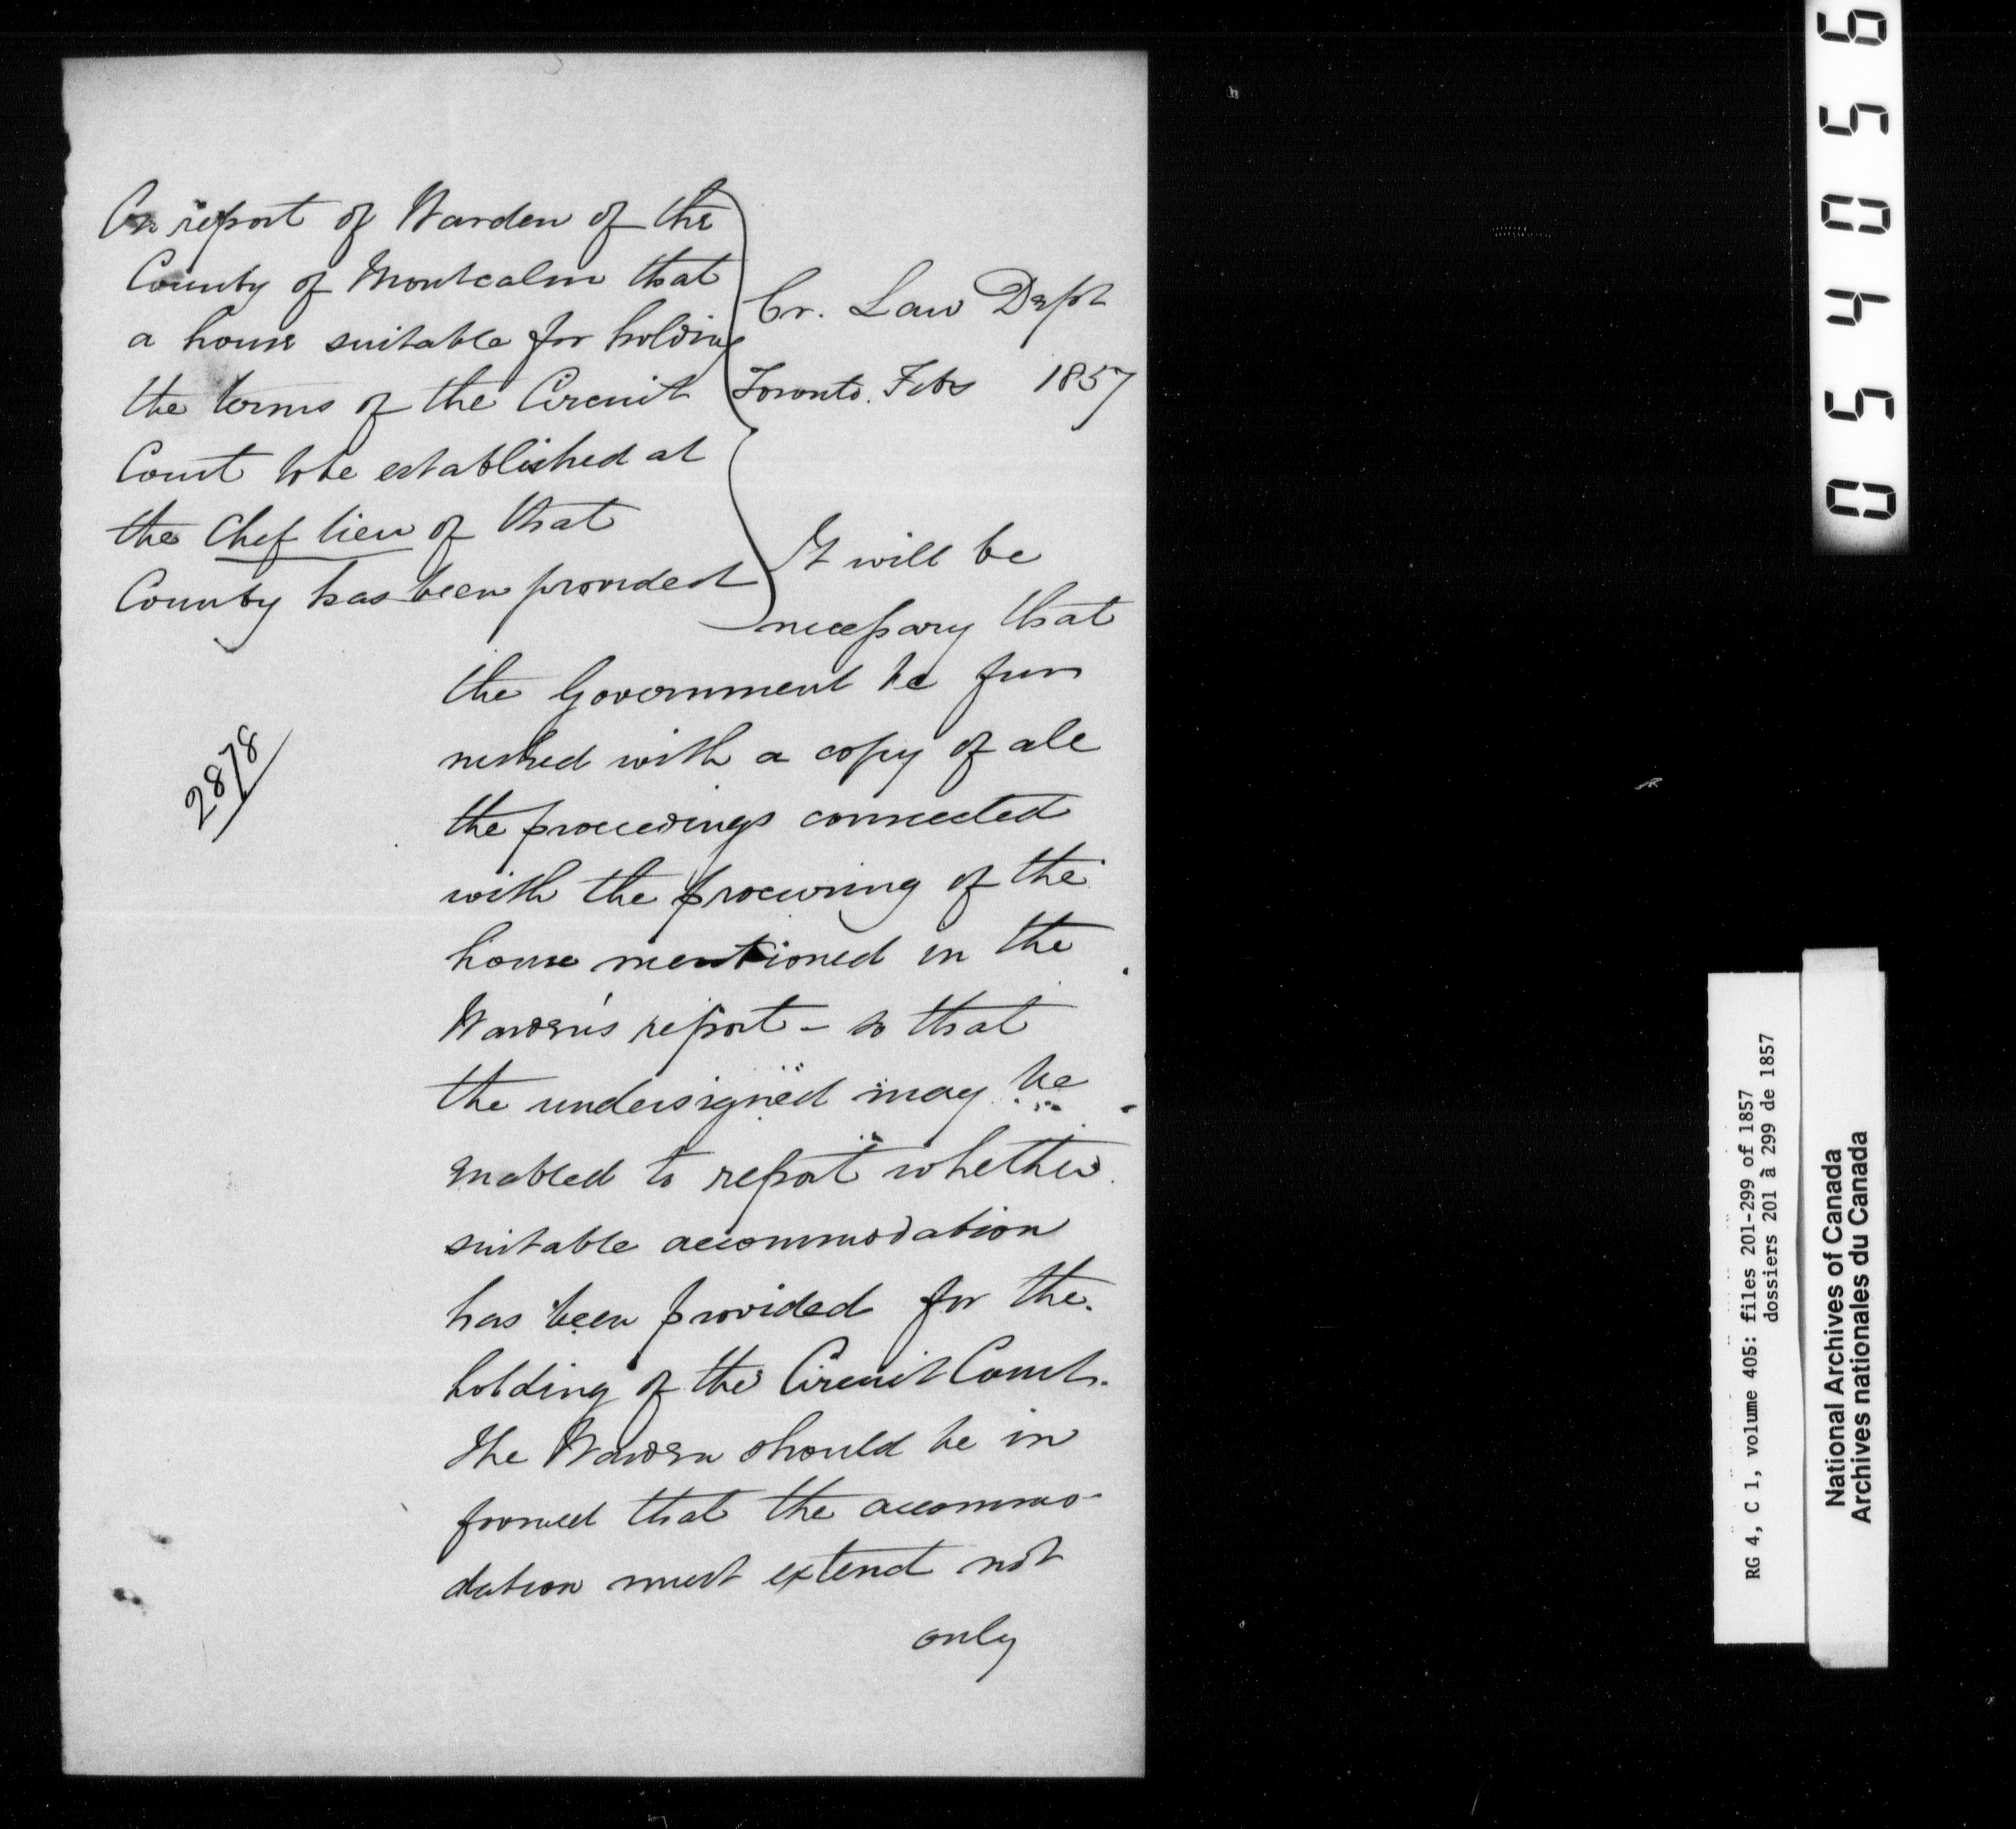 On report of Warden of the
County of Montcalm that
a house suitable for holding
the terms of the Circuit
Court to be established at
the Chef lieu of that
County has been provided
Cr. Law Dept
Toronto. Feby 1857
It will be
necessary that
the Government be fur
nished with a copy of all
the proceedings connected
with the procuring of the
house mentioned in the
Warden's report - so that
the undersigned may be
enabled to report whether
suitable accommodation
has been provided for the
holding of the Circuit Court.
The Warden should be in
formed that the accommo-
dation must extend not
only
2878
054056
RG 4, C 1, volume 405: files 201-299 of 1857
dossiers 201 à 299 de 1857
National Archives of Canada
Archives nationales du Canada